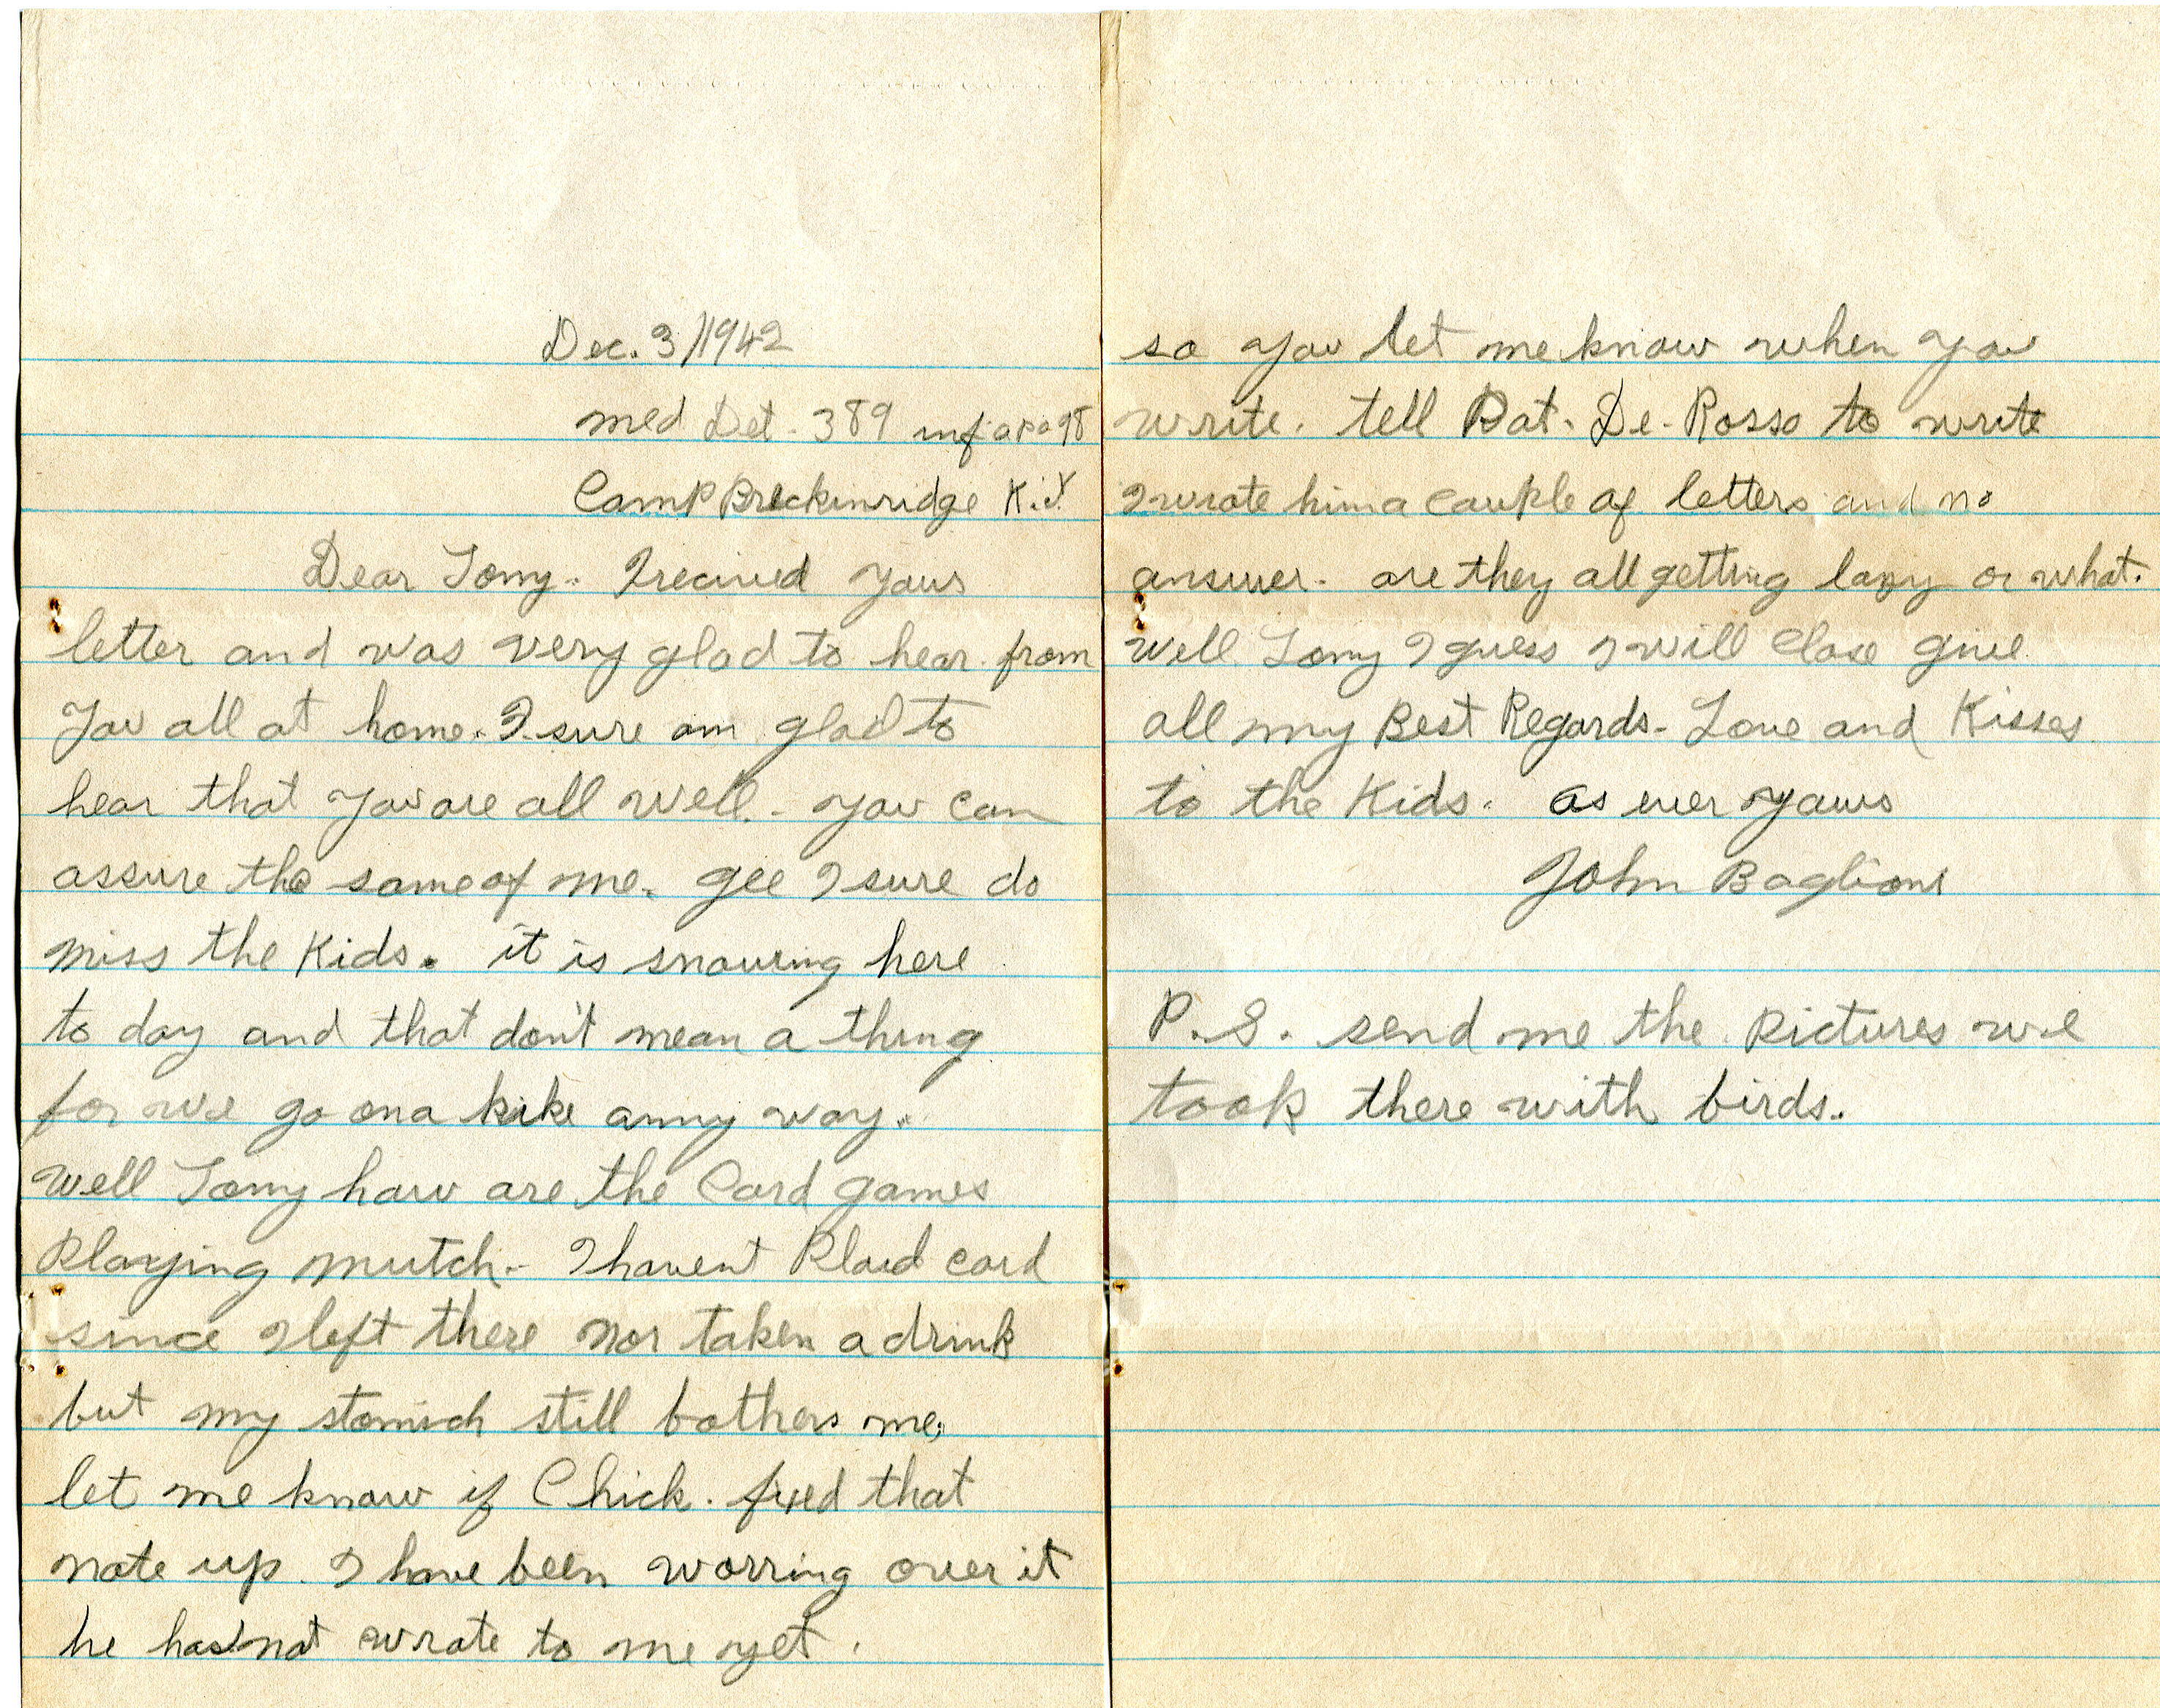 Dec. 3/1942
med Det. 389 inf apo 98
Camp Breckinridge K.Y.
Dear Tony. I recived yours
letter and was very glad to hear from
You all at home. I sure am glad to
hear that you are all well. you can
assure the same of me. gee I sure do
miss the Kids. it is snowing here
to day and that don't mean a thing
for we go on a hike anny way.
well Tony how are the Card games
Playing mutch. I havent Plaid card
since I left there nor taken a drink
but my stomich still bothers me,
let me know if Chick. fixed that
note up. I have been worring over it
he has not wrote to me yet.
so you let me know when you
write. tell Pat. De. Rosso to write
I wrote him a couple of letters and no
answer. are they all getting lazy or what.
well Tony I guess I will close give
all my Best Regards. Love and Kisses
to the Kids. as ever yours
John Baglioni
P.S. send me the Pictures we
took there with birds.